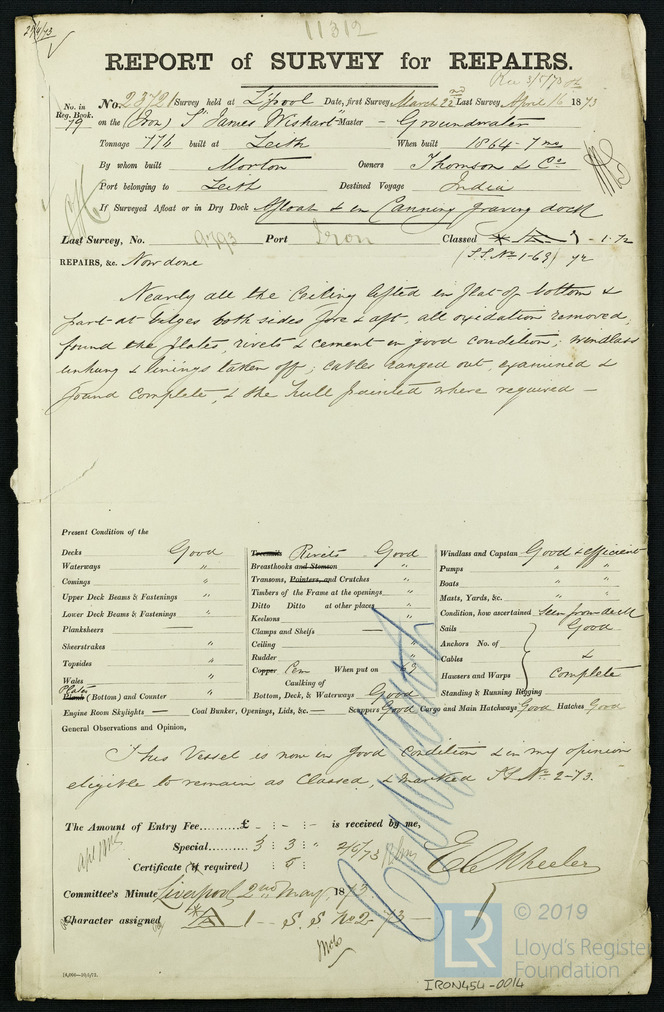 29/4/73
11312
REPORT of SURVEY for REPAIRS.
Rec 3/5/73
No. in Reg. Book. 79
No. 23721 Survey held at L'pool Date, first Survey March 22nd Last Survey April 16 1873
on the (Iron) S "James Wishart" Master Groundwater
Tonnage 776 built at Leith When built 1864 - 7 mo
By whom built Morton Owners Thomson & Co
Port belonging to Leith Destined Voyage India
If Surveyed Afloat or in Dry Dock Afloat & in Canning graving dock
Last Survey, No. 9793 Port Iron Classed 1 - 1-72
(S.S. No 1-69)
REPAIRS, &c. Now done
Nearly all the Ceiling lifted in flat of bottom &
part at bilges both sides fore & aft, all oxidation removed,
found the plates, rivets & cement in good condition; windlass
unhung & linings taken off; cables ranged out, examined &
found complete, & the hull painted where required —
Present Condition of the
Decks Good
Waterways "
Comings "
Upper Deck Beams & Fastenings "
Lower Deck Beams & Fastenings "
Planksheers —
Sheerstrakes "
Topsides "
Wales "
Plates
Plank (Bottom) and Counter "
Engine Room Skylights —
Treenails Rivets - Good
Breasthooks and Stemson "
Transoms, Pointers, and Crutches "
Timbers of the Frame at the openings "
Ditto Ditto at other places "
Keelsons "
Clamps and Shelfs —
Ceiling "
Rudder "
Copper Cem When put on 69
Caulking of
Bottom, Deck, & Waterways Good
Coal Bunker, Openings, Lids, &c. — Scuppers Good Cargo and Main Hatchways Good Hatches Good
Windlass and Capstan Good & efficient
Pumps " "
Boats " "
Masts, Yards, &c. " "
Condition, how ascertained seen from deck
Sails Good
Anchors No. of
Cables &
Hausers and Warps Complete
Standing & Running Rigging
General Observations and Opinion,
This Vessel is now in good condition & in my opinion
eligible to remain as Classed, & marked S.S. No 2-73.
The Amount of Entry Fee..........£ - : - : - is received by me,
Special..... 3 : 3 : " 2/5/73
Certificate (if required) : 5 :
E C Wheeler
Committee's Minute Liverpool 2nd May, 1873.
Character assigned A 1 — S. S No 2-73 —
© 2019
LR Lloyd's Register
Foundation
IRON454-0014